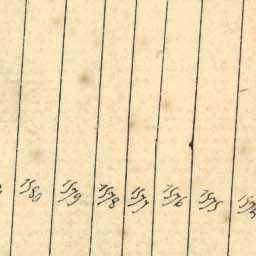 1580 1579 1578 1577 1576 1575